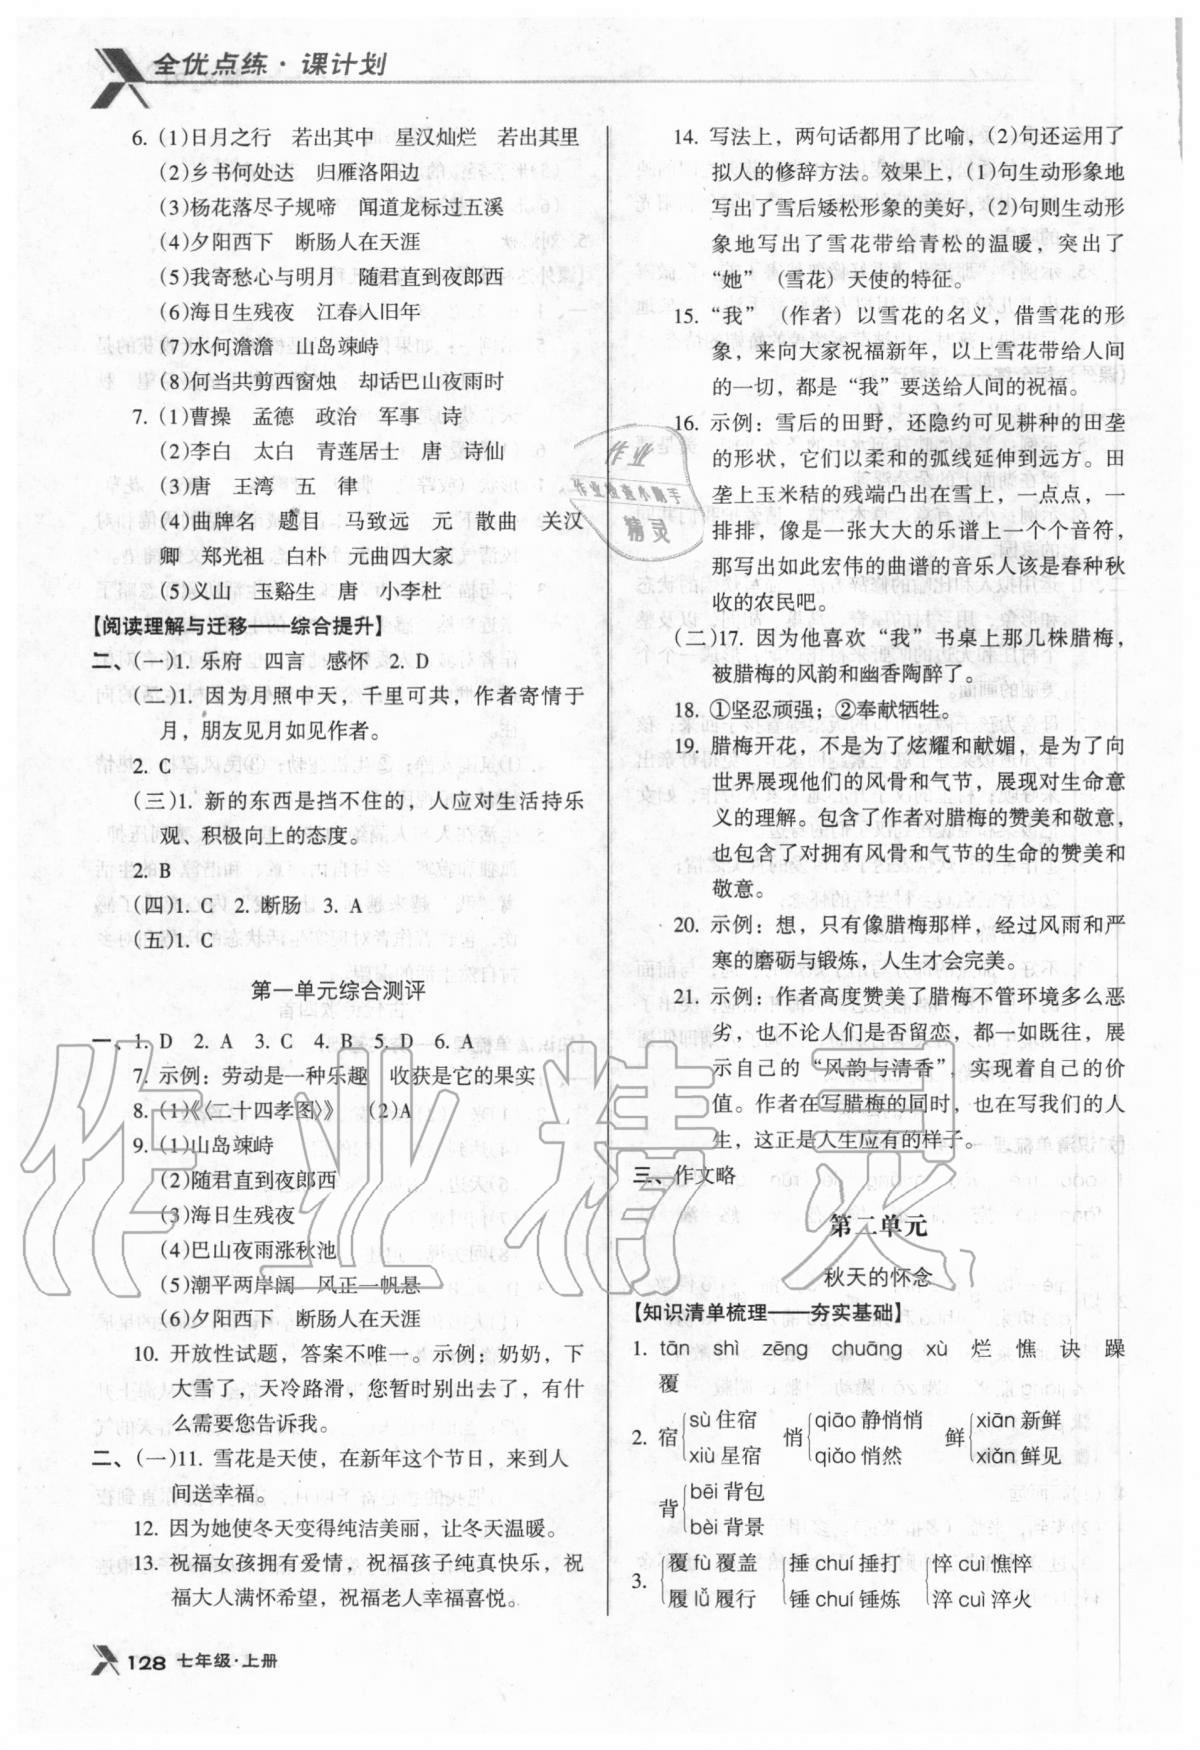 全优点练·课计划
6. (1)日月之行 若出其中 星汉灿烂 若出其里
(2)乡书何处达 归雁洛阳边
(3)杨花落尽子规啼 闻道龙标过五溪
(4)夕阳西下 断肠人在天涯
(5)我寄愁心与明月 随君直到夜郎西
(6)海日生残夜 江春入旧年
(7)水何澹澹 山岛竦峙
(8)何当共剪西窗烛 却话巴山夜雨时
7. (1)曹操 孟德 政治 军事 诗
(2)李白 太白 青莲居士 唐 诗仙
(3)唐 王湾 五 律
(4)曲牌名 题目 马致远 元 散曲 关汉
卿 郑光祖 白朴 元曲四大家
(5)义山 玉谿生 唐 小李杜
【阅读理解与迁移——综合提升】
二、(一)1. 乐府 四言 感怀 2. D
(二)1. 因为月照中天，千里可共，作者寄情于
月，朋友见月如见作者。
2. C
(三)1. 新的东西是挡不住的，人应对生活持乐
观、积极向上的态度。
2. B
(四)1. C 2. 断肠 3. A
(五)1. C
第一单元综合测评
一、1. D 2. A 3. C 4. B 5. D 6. A
7. 示例：劳动是一种乐趣 收获是它的果实
8. (1)《《二十四孝图》》 (2)A
9. (1)山岛竦峙
(2)随君直到夜郎西
(3)海日生残夜
(4)巴山夜雨涨秋池
(5)潮平两岸阔 风正一帆悬
(6)夕阳西下 断肠人在天涯
10. 开放性试题，答案不唯一。示例：奶奶，下
大雪了，天冷路滑，您暂时别出去了，有什
么需要您告诉我。
二、(一)11. 雪花是天使，在新年这个节日，来到人
间送幸福。
12. 因为她使冬天变得纯洁美丽，让冬天温暖。
13. 祝福女孩拥有爱情，祝福孩子纯真快乐，祝
福大人满怀希望，祝福老人幸福喜悦。
14. 写法上，两句话都用了比喻，(2)句还运用了
拟人的修辞方法。效果上，(1)句生动形象地
写出了雪后矮松形象的美好，(2)句则生动形
象地写出了雪花带给青松的温暖，突出了
“她”（雪花）天使的特征。
15. “我”（作者）以雪花的名义，借雪花的形
象，来向大家祝福新年，以上雪花带给人间
的一切，都是“我”要送给人间的祝福。
16. 示例：雪后的田野，还隐约可见耕种的田垄
的形状，它们以柔和的弧线延伸到远方。田
垄上玉米秸的残端凸出在雪上，一点点，一
排排，像是一张大大的乐谱上一个个音符，
那写出如此宏伟的曲谱的音乐人该是春种秋
收的农民吧。
(二)17. 因为他喜欢“我”书桌上那几株腊梅，
被腊梅的风韵和幽香陶醉了。
18. ①坚忍顽强；②奉献牺牲。
19. 腊梅开花，不是为了炫耀和献媚，是为了向
世界展现他们的风骨和气节，展现对生命意
义的理解。包含了作者对腊梅的赞美和敬意，
也包含了对拥有风骨和气节的生命的赞美和
敬意。
20. 示例：想，只有像腊梅那样，经过风雨和严
寒的磨砺与锻炼，人生才会完美。
21. 示例：作者高度赞美了腊梅不管环境多么恶
劣，也不论人们是否留恋，都一如既往，展
示自己的“风韵与清香”，实现着自己的价
值。作者在写腊梅的同时，也在写我们的人
生，这正是人生应有的样子。
三、作文略
第二单元
秋天的怀念
【知识清单梳理——夯实基础】
1. tān shì zēng chuāng xù 烂 憔 诀 躁
覆
2. 宿 sù 住宿 xiù 星宿 悄 qiāo 静悄悄 qiǎo 悄然 鲜 xiān 新鲜 xiǎn 鲜见
背 bēi 背包 bèi 背景
3. 覆 fù 覆盖 履 lǚ 履行 捶 chuí 捶打 锤 chuí 锤炼 悴 cuì 憔悴 淬 cuì 淬火
128 七年级·上册
作业
作业检查小助手
精灵
作业精灵